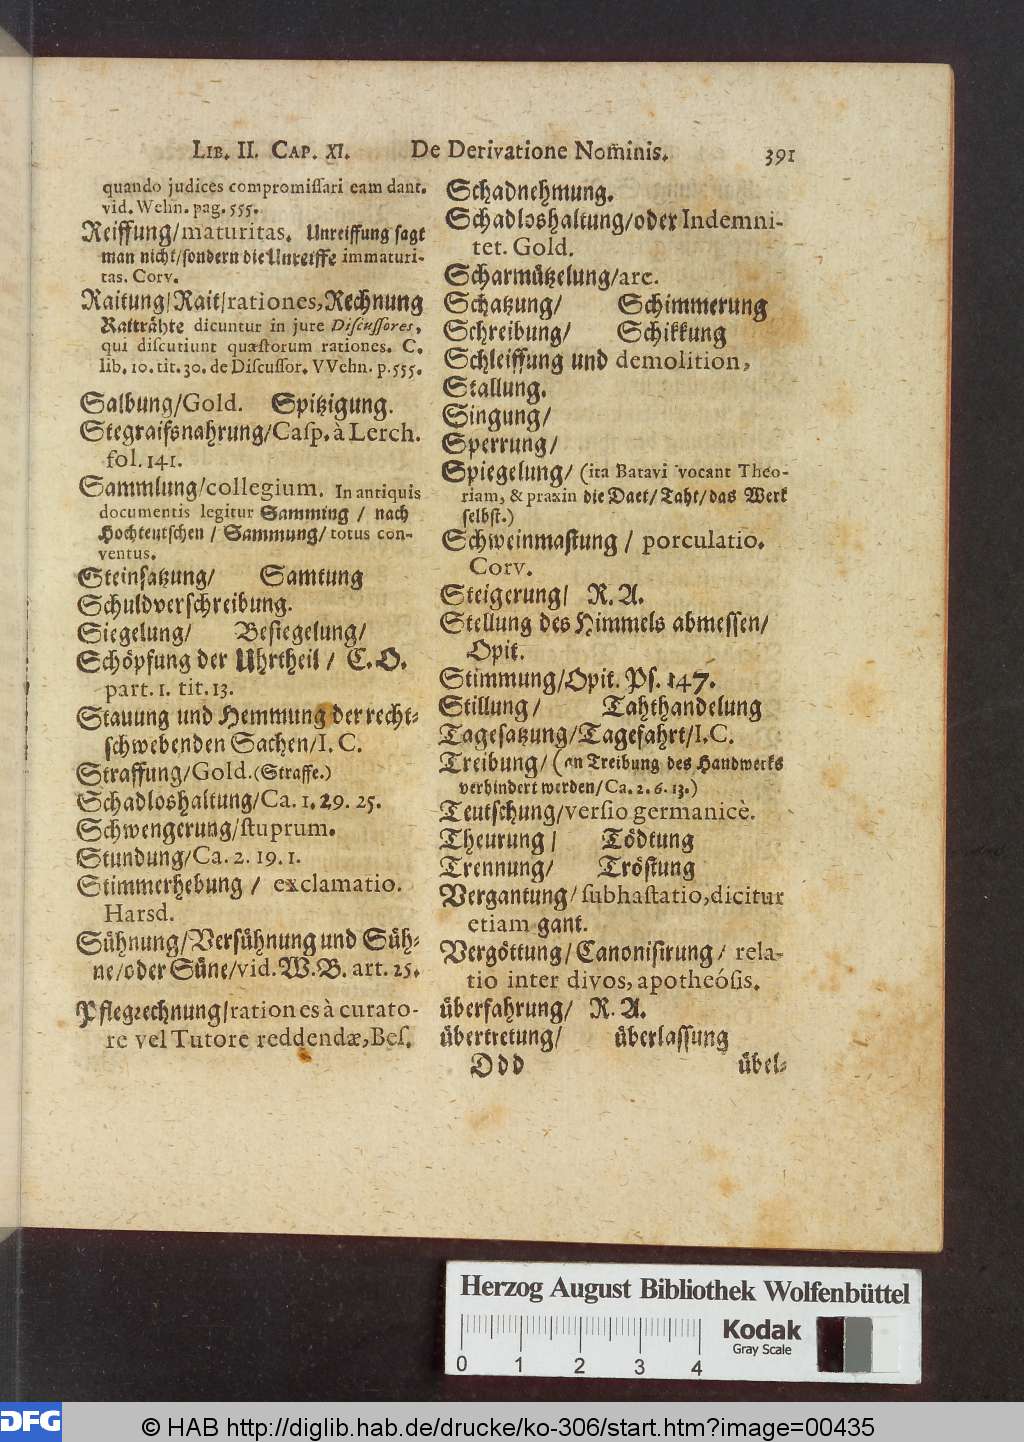 LIB. II. CAP. XI. De Derivatione Nominis. 391
quando judices compromissari eam dant.
vid. Wehn. pag. 555.
Reiffung/maturitas. Unreiffung sagt
man nicht/sondern die Unreiffe immaturi-
tas. Corv.
Raitung/Rait/rationes, Rechnung
Raiträhte dicuntur in jure Discussores,
qui discutiunt quæstorum rationes. C.
lib. 10. tit. 30. de Discussor. VVehn. p. 555.
Salbung/Gold. Spitzigung.
Stegraifsnahrung/Casp. à Lerch.
fol. 141.
Sammlung/collegium. In antiquis
documentis legitur Samming / nach
Hochteutschen / Sammung/ totus con-
ventus.
Steinsatzung/ Samtung
Schuldverschreibung.
Siegelung/ Besiegelung/
Schöpfung der Uhrtheil / C. O.
part. 1. tit. 13.
Stauung und Hemmung der recht-
schwebenden Sachen/I. C.
Straffung/Gold. (Straffe.)
Schadloshaltung/Ca. 1. 29. 25.
Schwengerung/stuprum.
Stundung/Ca. 2. 19. 1.
Stimmerhebung / exclamatio.
Harsd.
Sühnung/Versühnung und Süh-
ne/oder Süne/vid. W. B. art. 25.
Pflegrechnung/rationes à curato-
re vel Tutore reddendæ, Bes.
Schadnehmung.
Schadloshaltung/oder Indemni-
tet. Gold.
Scharmützelung/arc.
Schatzung/ Schimmerung
Schreibung/ Schikkung
Schleiffung und demolition,
Stallung.
Singung/
Sperrung/
Spiegelung/ (ita Batavi vocant Theo-
riam, & praxin die Daet/Taht/das Werk
selbst.)
Schweinmastung / porculatio.
Corv.
Steigerung/ R. A.
Stellung des Himmels abmessen/
Opit.
Stimmung/Opit. Ps. 147.
Stillung / Tahthandelung
Tagesatzung/Tagefahrt/I. C.
Treibung/ (an Treibung des Handwerks
verhindert werden/Ca. 2. 6. 13.)
Teutschung/versio germanicè.
Theurung / Tödtung
Trennung/ Tröstung
Vergantung/subhastatio, dicitur
etiam gant.
Vergöttung/Canonisirung/ rela-
tio inter divos, apotheósis.
überfahrung/ R. A.
übertretung/ überlassung
Ddd übel-
Herzog August Bibliothek Wolfenbüttel
Kodak
Gray Scale
0 1 2 3 4
DFG
© HAB http://diglib.hab.de/drucke/ko-306/start.htm?image=00435